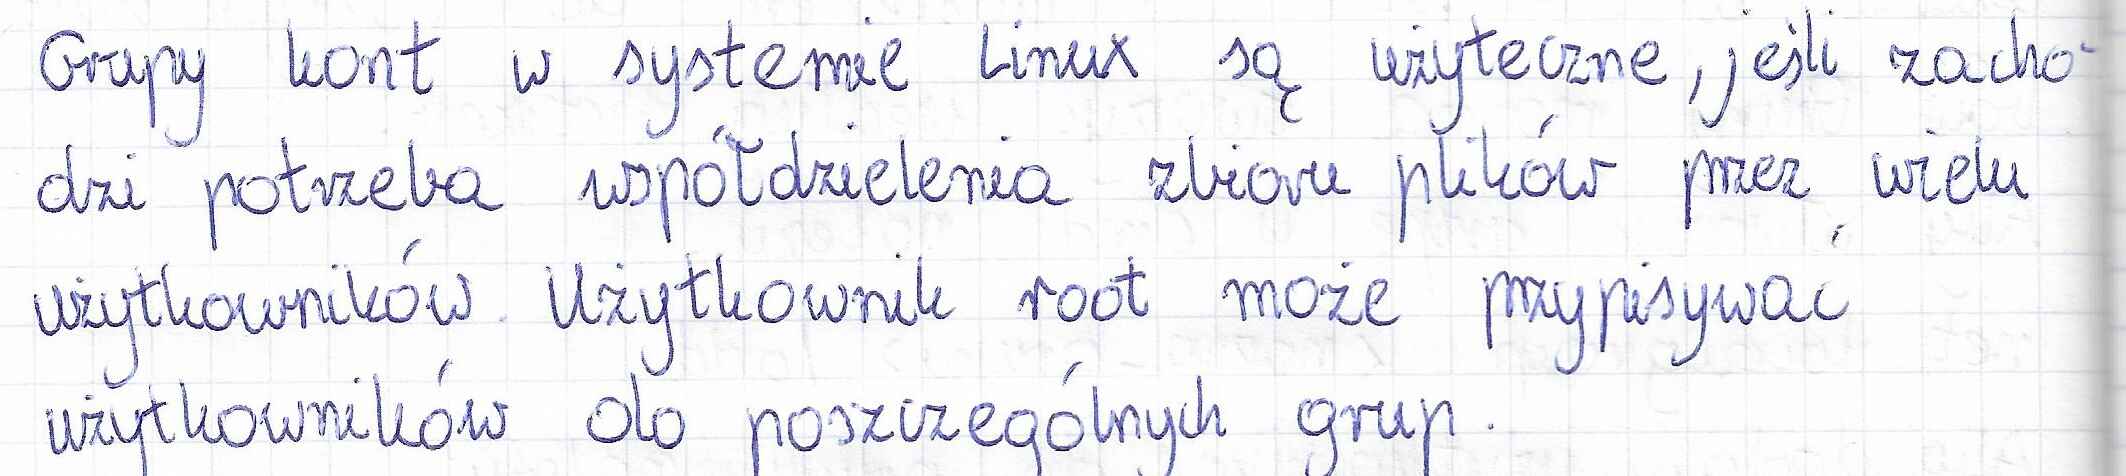 Grupy kont w systemie Linux są użyteczne, jeśli zacho-
dzi potrzeba współdzielenia zbioru plików przez wielu
użytkowników. Użytkownik root może przypisywać
użytkowników do poszczególnych grup.